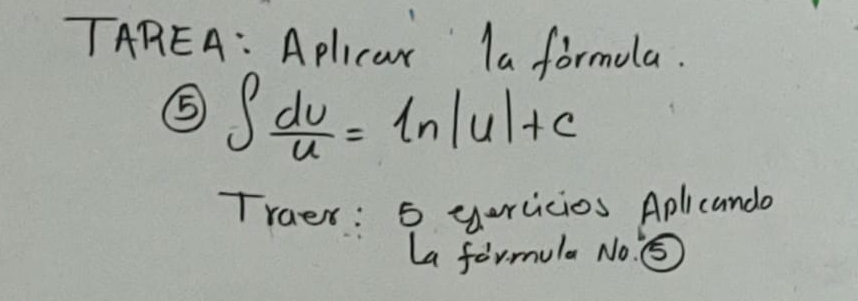 TAREA: Aplicar la fórmula.
⑤ ∫ du/u = ln|u|+c
Traer: 5 ejercicios Aplicando
La fórmula No. ⑤